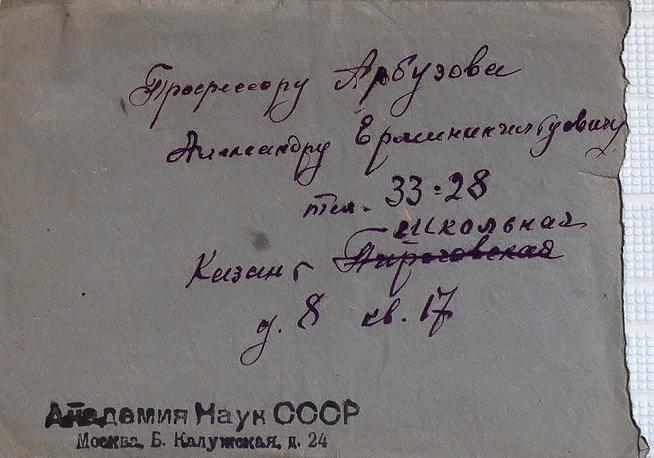 Профессору Арбузову
Александру Ерминингельдовичу
тел. 33-28
Школьная
Казань Пироговская
д. 8 кв. 17
Академия Наук СССР
Москва, Б. Калужская, д. 24